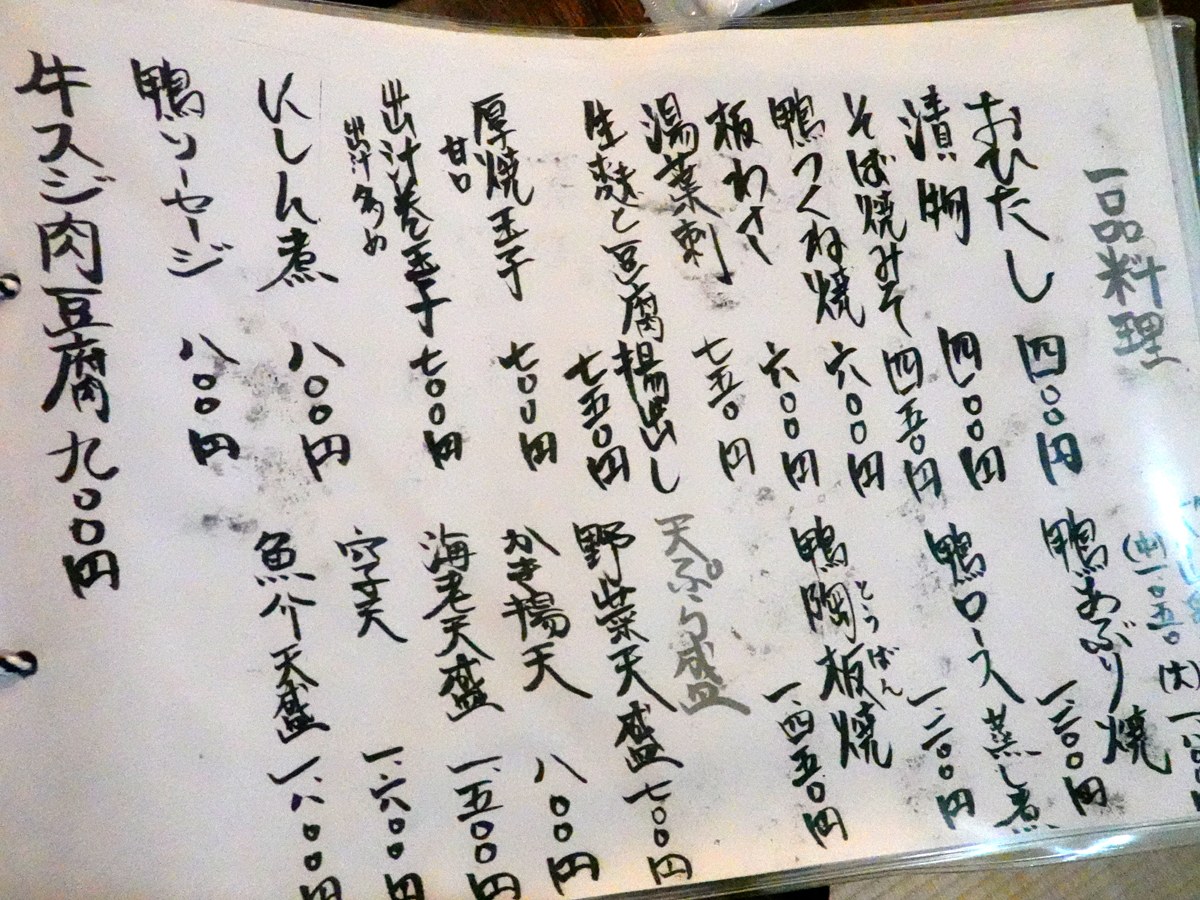 一品料理
おひたし 四〇〇円
漬物 四〇〇円
そば焼みそ 四五〇円
鴨つくね焼 六〇〇円
板わさ 六〇〇円
湯葉刺 七五〇円
生麩と豆腐揚出し 七五〇円
厚焼玉子 七〇〇円
甘口
出汁巻玉子 七〇〇円
出汁多め
にしん煮 八〇〇円
鴨ソーセージ 八〇〇円
牛スジ肉豆腐 九〇〇円
(中)一、〇五〇
(大)
鴨あぶり焼 一、二〇〇円
鴨ロース蒸し煮 一、二〇〇円
鴨陶板焼 一、四五〇円
とうばん
天ぷら盛
野菜天盛 七〇〇円
かき揚天 八〇〇円
海老天盛 一、五〇〇円
穴子天 一、六〇〇円
魚介天盛 一、八〇〇円